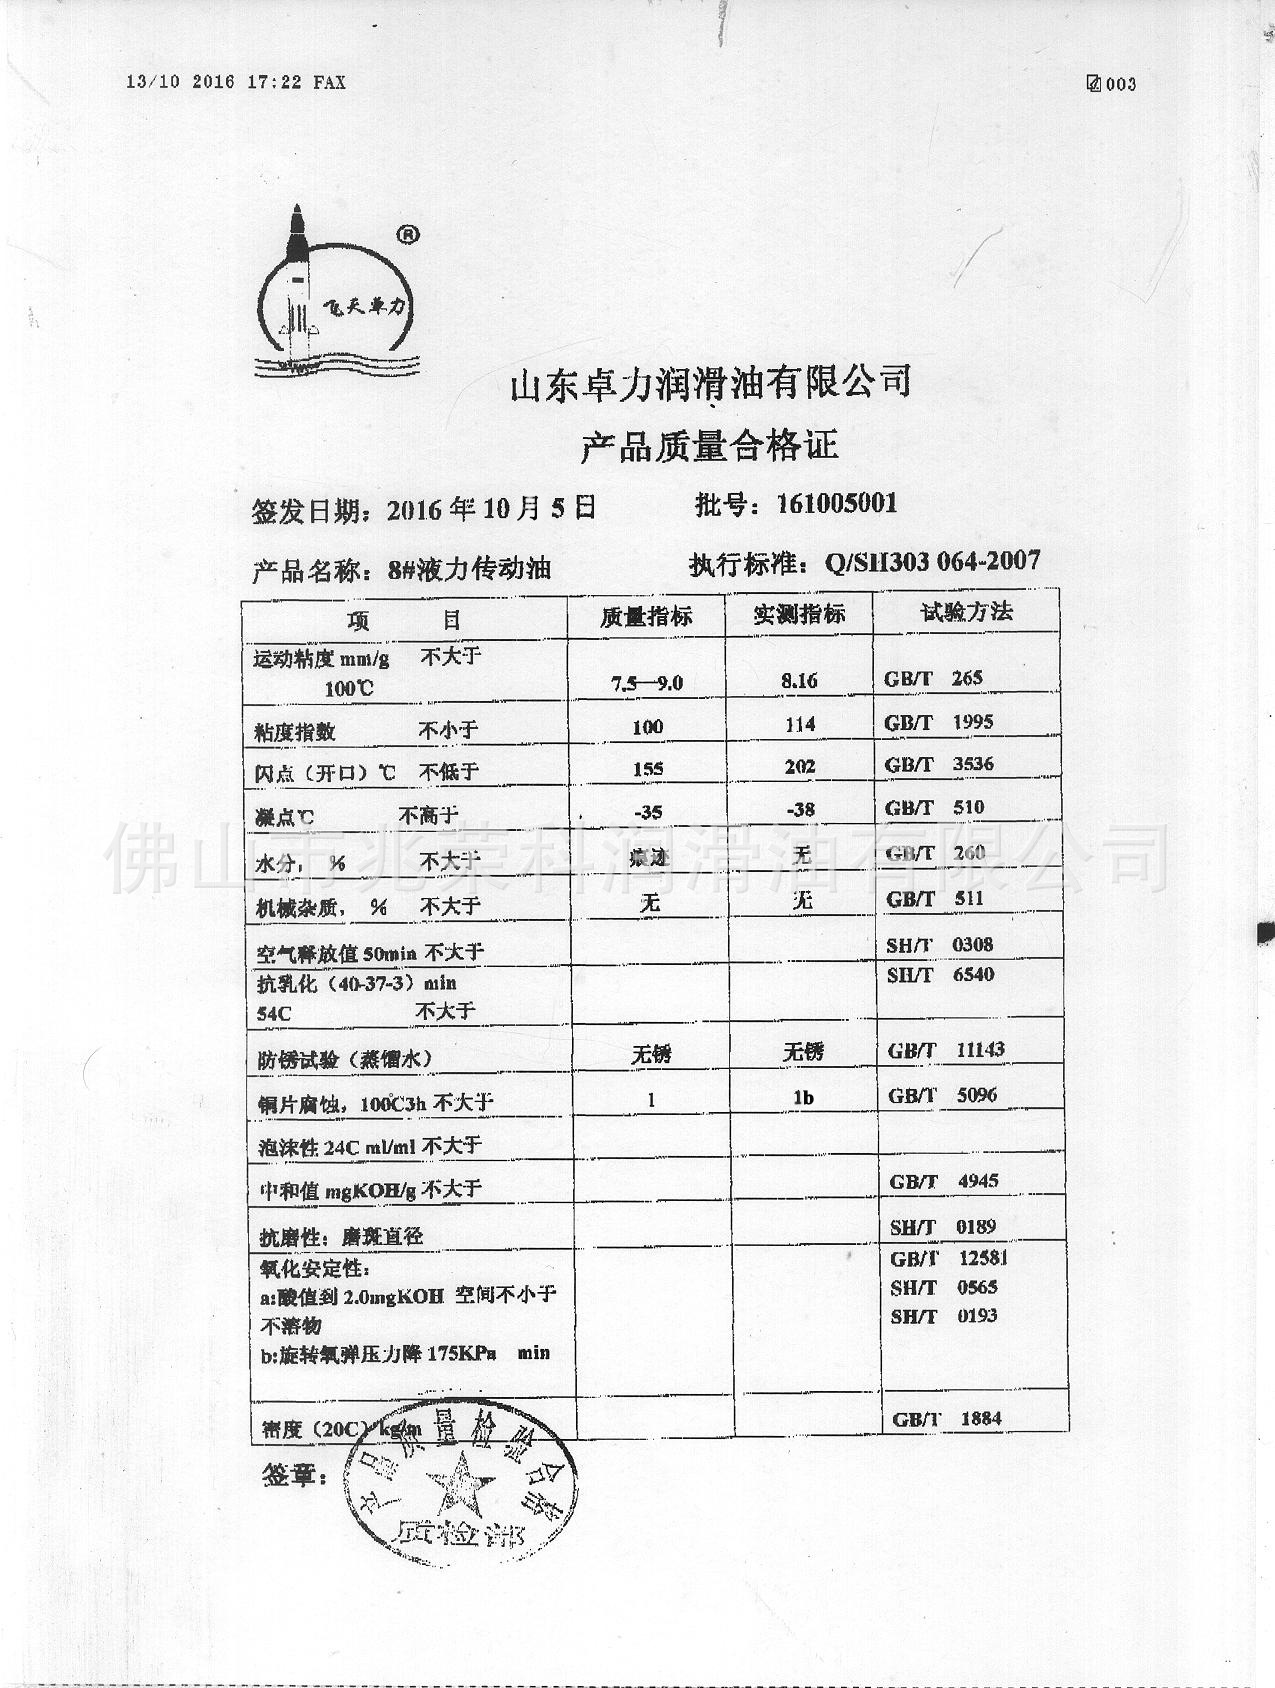 13/10 2016 17:22 FAX
003
®
飞天卓力
山东卓力润滑油有限公司
产品质量合格证
签发日期：2016 年 10 月 5 日 批号：161005001
产品名称：8#液力传动油 执行标准：Q/SH303 064-2007
项 目 质量指标 实测指标 试验方法
运动粘度 mm/g 不大于
100℃ 7.5—9.0 8.16 GB/T 265
粘度指数 不小于 100 114 GB/T 1995
闪点（开口）℃ 不低于 155 202 GB/T 3536
凝点℃ 不高于 -35 -38 GB/T 510
水分，% 不大于 痕迹 无 GB/T 260
佛山市兆荣科润滑油有限公司
机械杂质，% 不大于 无 无 GB/T 511
空气释放值 50min 不大于 SH/T 0308
抗乳化（40-37-3）min SH/T 6540
54C 不大于
防锈试验（蒸馏水） 无锈 无锈 GB/T 11143
铜片腐蚀，100℃3h 不大于 1 1b GB/T 5096
泡沫性 24C ml/ml 不大于
中和值 mgKOH/g 不大于 GB/T 4945
抗磨性：磨斑直径 SH/T 0189
氧化安定性： GB/T 12581
a:酸值到 2.0mgKOH 空间不小于 SH/T 0565
不溶物 SH/T 0193
b:旋转氧弹压力降 175KPa min
密度（20C）kg/m GB/T 1884
签章：
产品质量检验合格
质检部